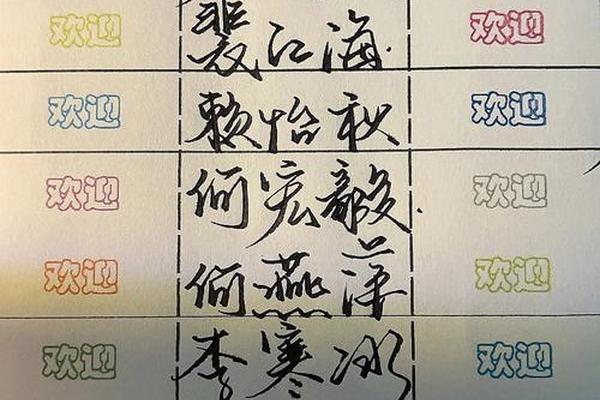 欢迎 裴江海 欢迎
欢迎 赖怡秋 欢迎
欢迎 何宏毅 欢迎
欢迎 何燕萍 欢迎
欢迎 李寒冰 欢迎